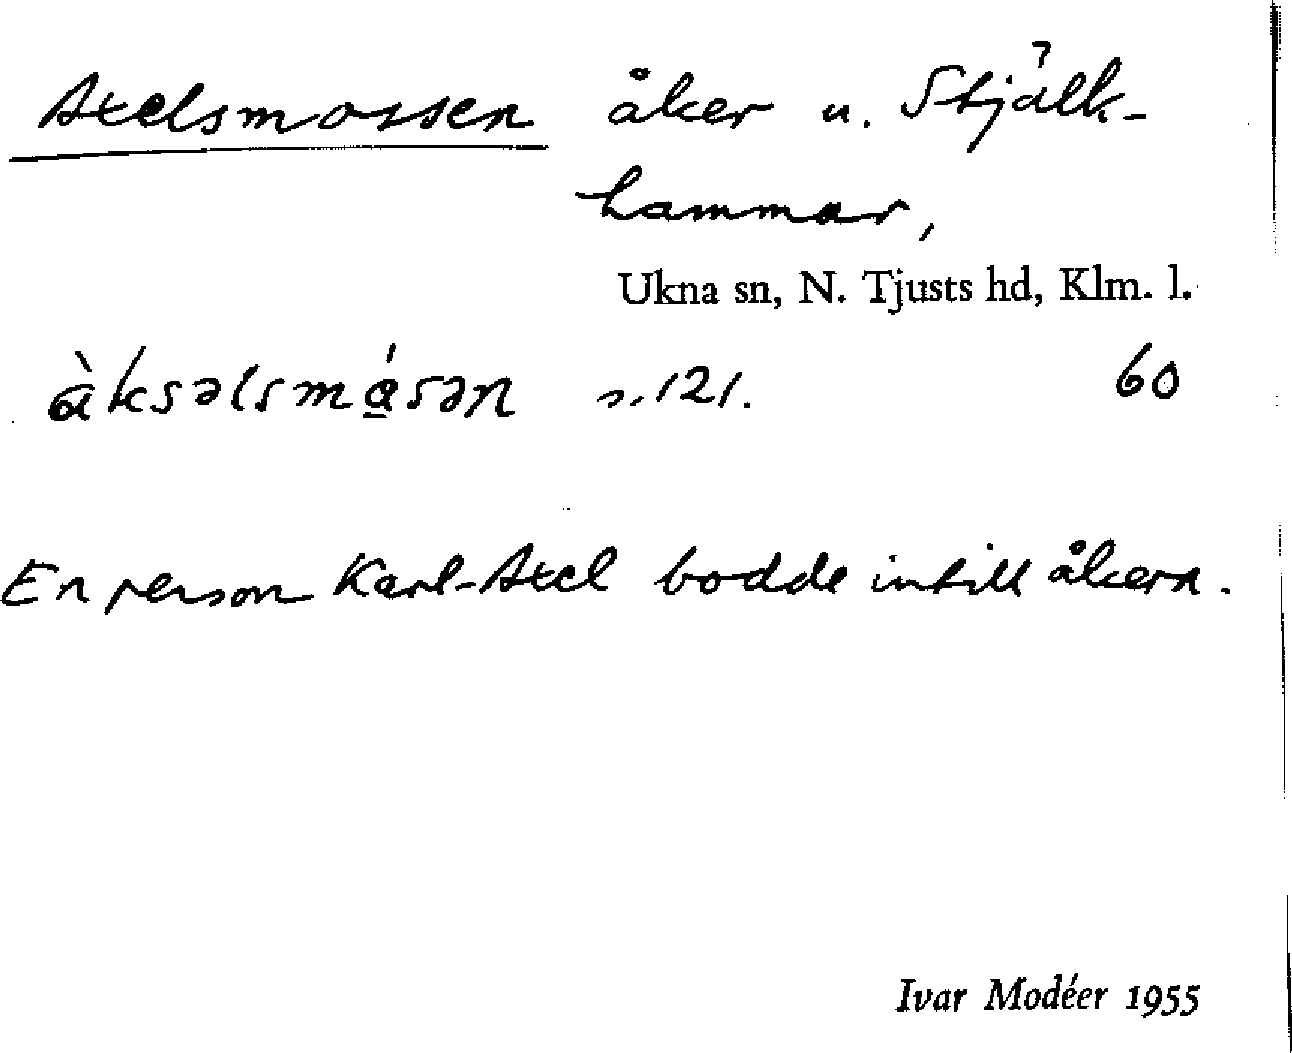 Axelsmossen åker u. Stjälk-
hammar,
Ukna sn, N. Tjusts hd, Klm. l.
àksəlsmá̱sən n. 121. 60
En person Karl-Axel bodde intill åkern.
Ivar Modéer 1955